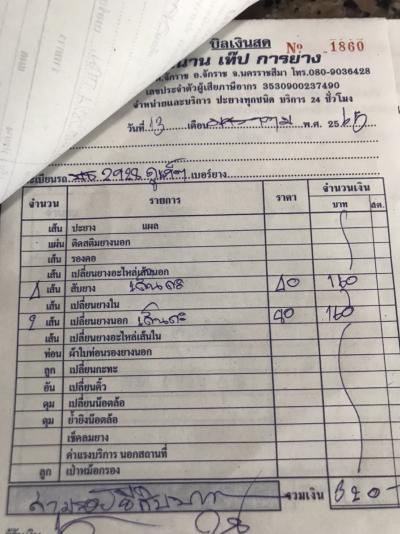 บิลเงินสด № 1860
นาน เท็ป การยาง
ต.จักราช อ.จักราช จ.นครราชสีมา โทร.080-9036428
เลขประจำตัวผู้เสียภาษีอากร 3530900237490
จำหน่ายและบริการ ปะยางทุกชนิด บริการ 24 ชั่วโมง
วันที่ 13 เดือน พ.ศ. 25
ทะเบียนรถ 2928 เบอร์ยาง
จำนวน รายการ ราคา จำนวนเงิน
บาท สต.
เส้น ปะยาง แผล
แผ่น ติดสติมยางนอก
เส้น รองคอ
เส้น เปลี่ยนยางอะไหล่เส้นนอก
4 เส้น สับยาง เส้นละ 40 160
เส้น เปลี่ยนยางใน
2 เส้น เปลี่ยนยางนอก เส้นละ 80 160
เส้น เปลี่ยนยางอะไหล่เส้นใน
ท่อน ผ้าใบท่อนรองยางนอก
ลูก เปลี่ยนกะทะ
อัน เปลี่ยนคิ้ว
ดุม เปลี่ยนน็อตล้อ
ดุม ย้ำยิงน็อตล้อ
เช็คลมยาง
ค่าแรงบริการ นอกสถานที่
ลูก เป่าหม้อกรอง
สามร้อยยี่สิบบาท รวมเงิน 320-